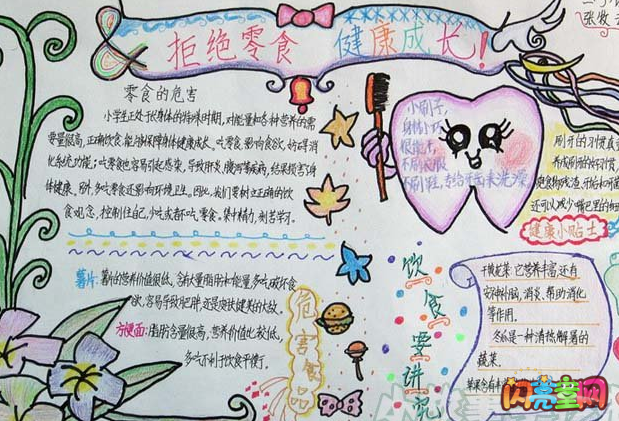 拒绝零食 健康成长!
零食的危害
小学生正处于身体的特殊时期,对能量和各种营养的需
要量很高,正确饮食,能够保障身体健康成长。吃零食,影响食欲,妨碍消
化系统功能;吃零食也容易引起感染,导致肝炎,腹泻等疾病,结果损害了身
体健康。另外,多吃零食还影响环境卫生。因此,我们要树立正确的饮
食观念,控制住自己,少吃或者不吃零食。集中精力,刻苦学习。
薯片:薯片的营养价值很低,含有大量脂肪和能量,多吃破坏食
欲,容易导致肥胖,还是皮肤健美的大敌。
方便面:脂肪含量很高,营养价值比较低,
多吃不利于饮食平衡。
危害食品
小刷子,
身体小巧
很能干,
不刷衣服
不刷鞋,专给牙齿来洗澡。
健康小贴士
饮食要讲究
它营养丰富,还有
安神补脑,消炎、帮助消化
等作用。
冬瓜是一种清热解暑的
蔬菜。
闪亮童网